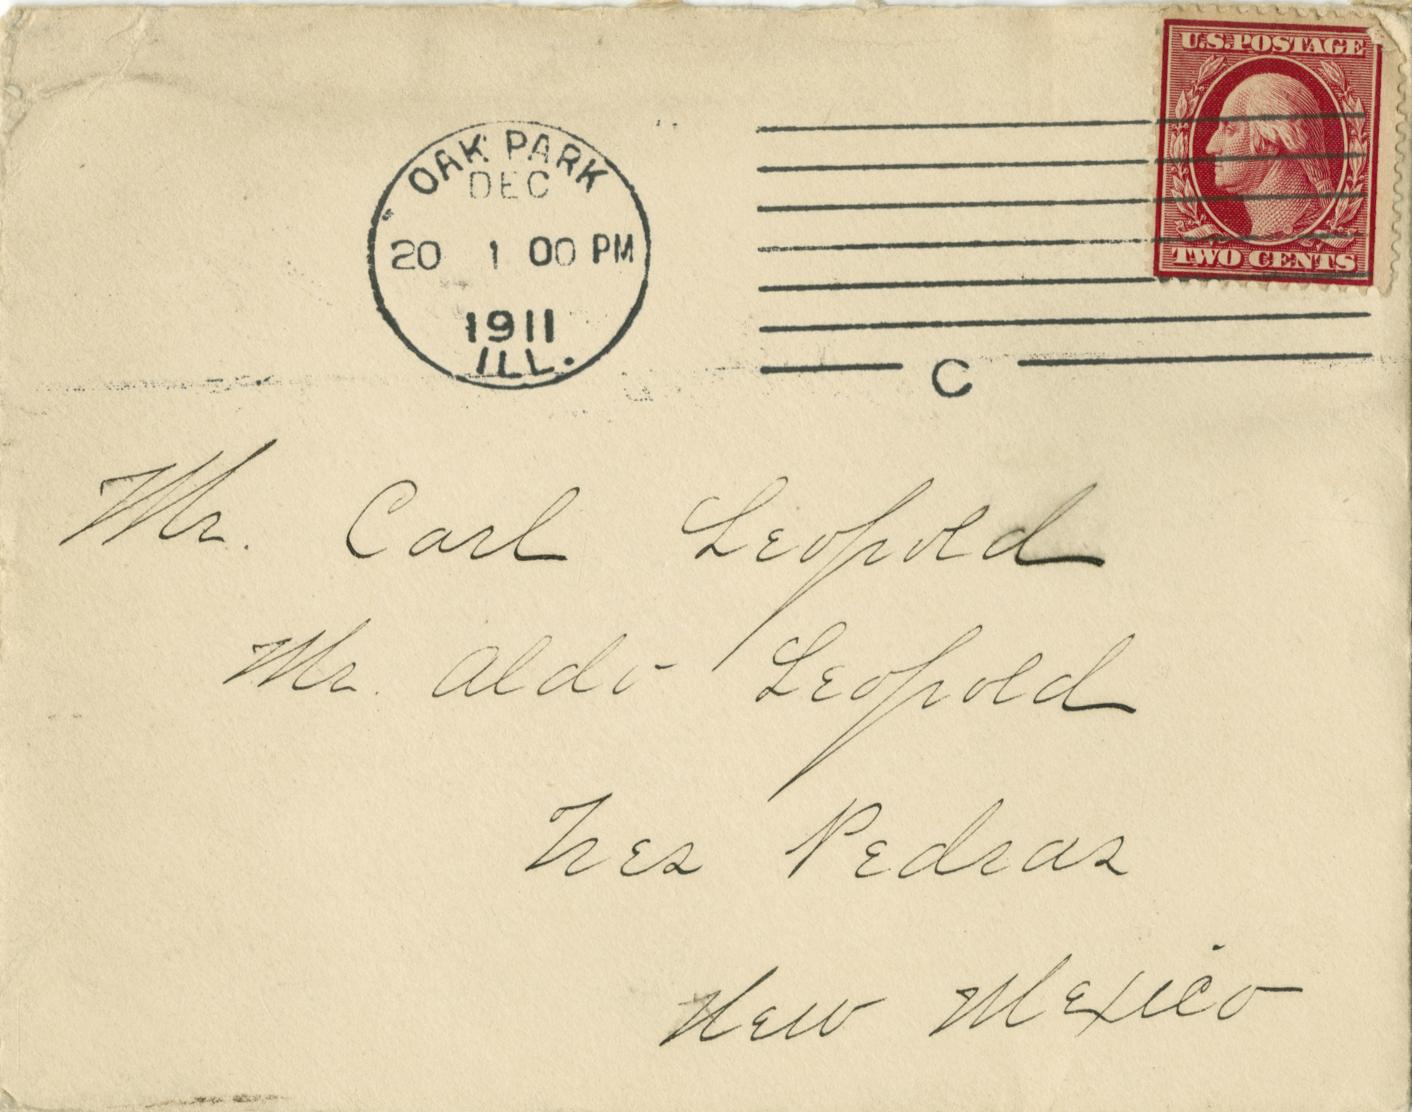 U.S. POSTAGE
OAK PARK
DEC
20 1 00 PM
1911
ILL.
TWO CENTS
C
Mr. Carl Leopold
Mr. Aldo Leopold
Tres Pedras
New Mexico